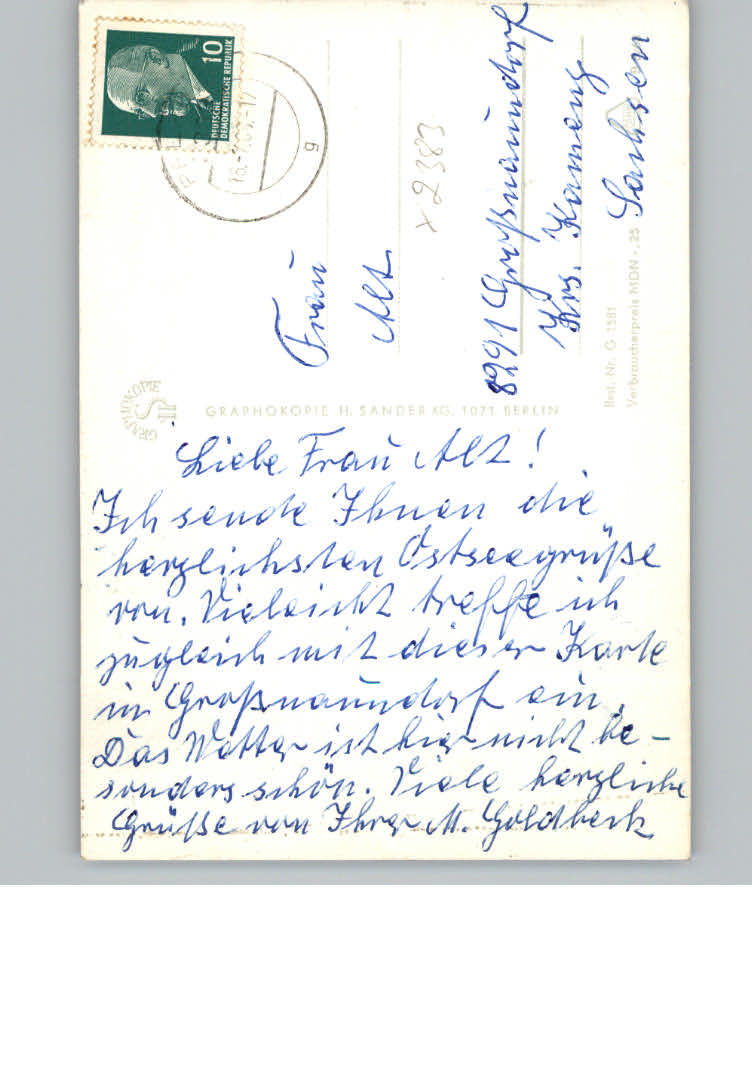 Liebe Frau Alt!
Ich sende Ihnen die
herzlichsten Ostseegrüße
von. Vieleicht treffe ich
zugleich mit dieser Karte
in Großnaundorf ein.
Das Wetter ist hier nicht be-
sonders schön. Viele herzliche
Grüße von Ihrer M. Goldbeck
Frau
Alt
8291 Großnaundorf
Krs. Kamenz
Sachsen
x 2383
10
DEUTSCHE
DEMOKRATISCHE REPUBLIK
g
GRAPHOKOPIE
GRAPHOKOPIE H. SANDER KG. 1071 BERLIN
Best. Nr. G 1581
Verbraucherpreis MDN -,25